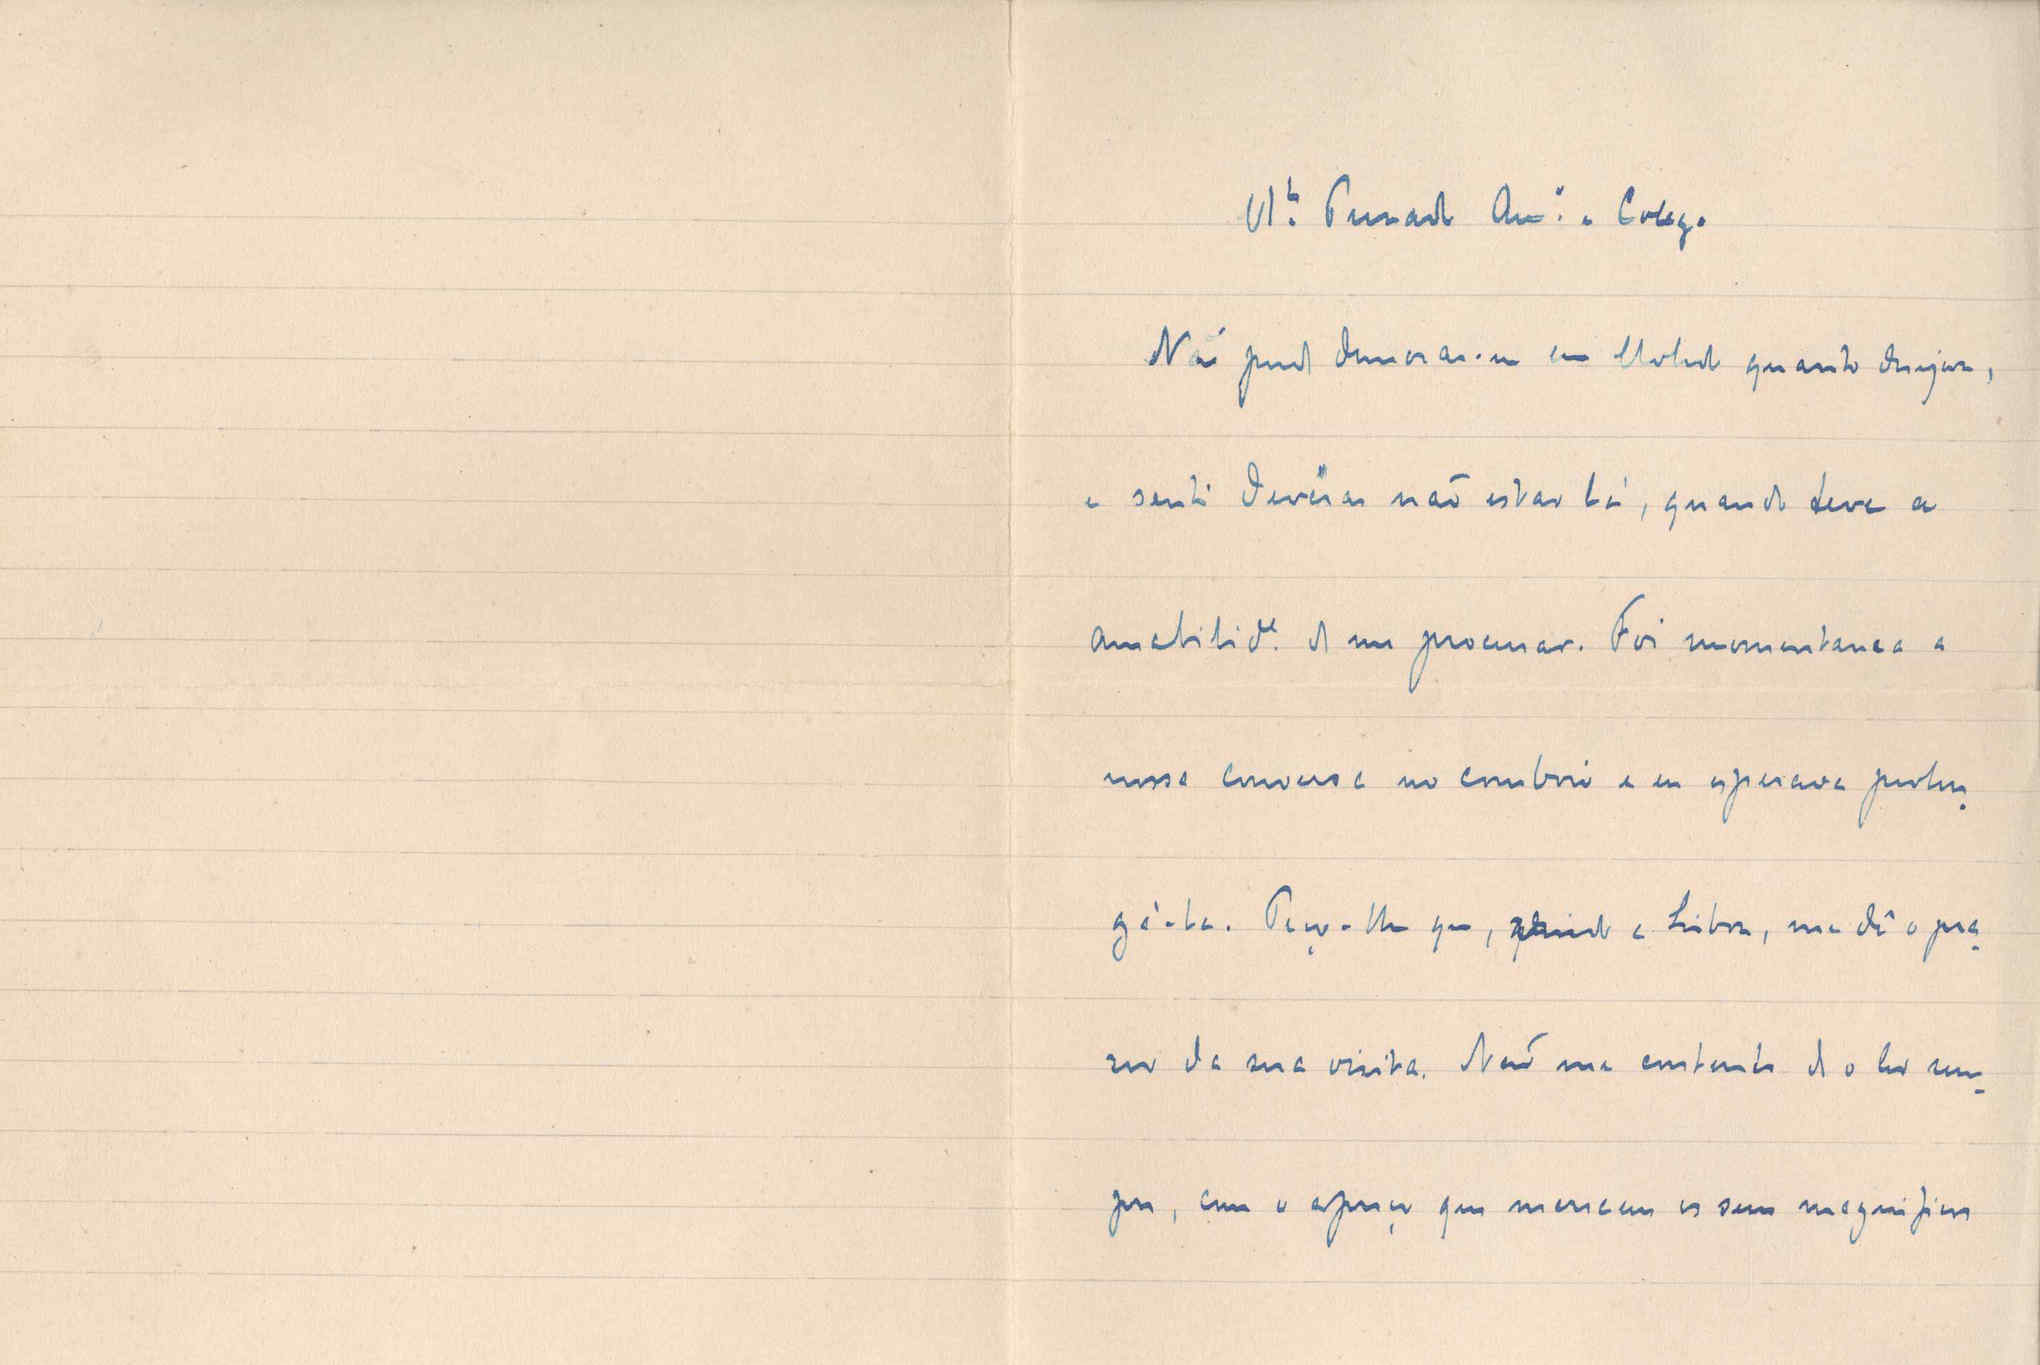 M.to Prezado Am.º e Colega
Não pude demorar-me em quanto desejava,
e senti devéras não estar lá, quando teve a
amabilid.e de me procurar. Foi momentanea a
nossa conversa no comboio e eu esperava prolon-
gá-la. Peço-lhe que, vindo a Lisboa, me dê o pra-
zer da sua visita. Não me contento de o ler sem-
pre, com o apreço que merecem os seus magnificos